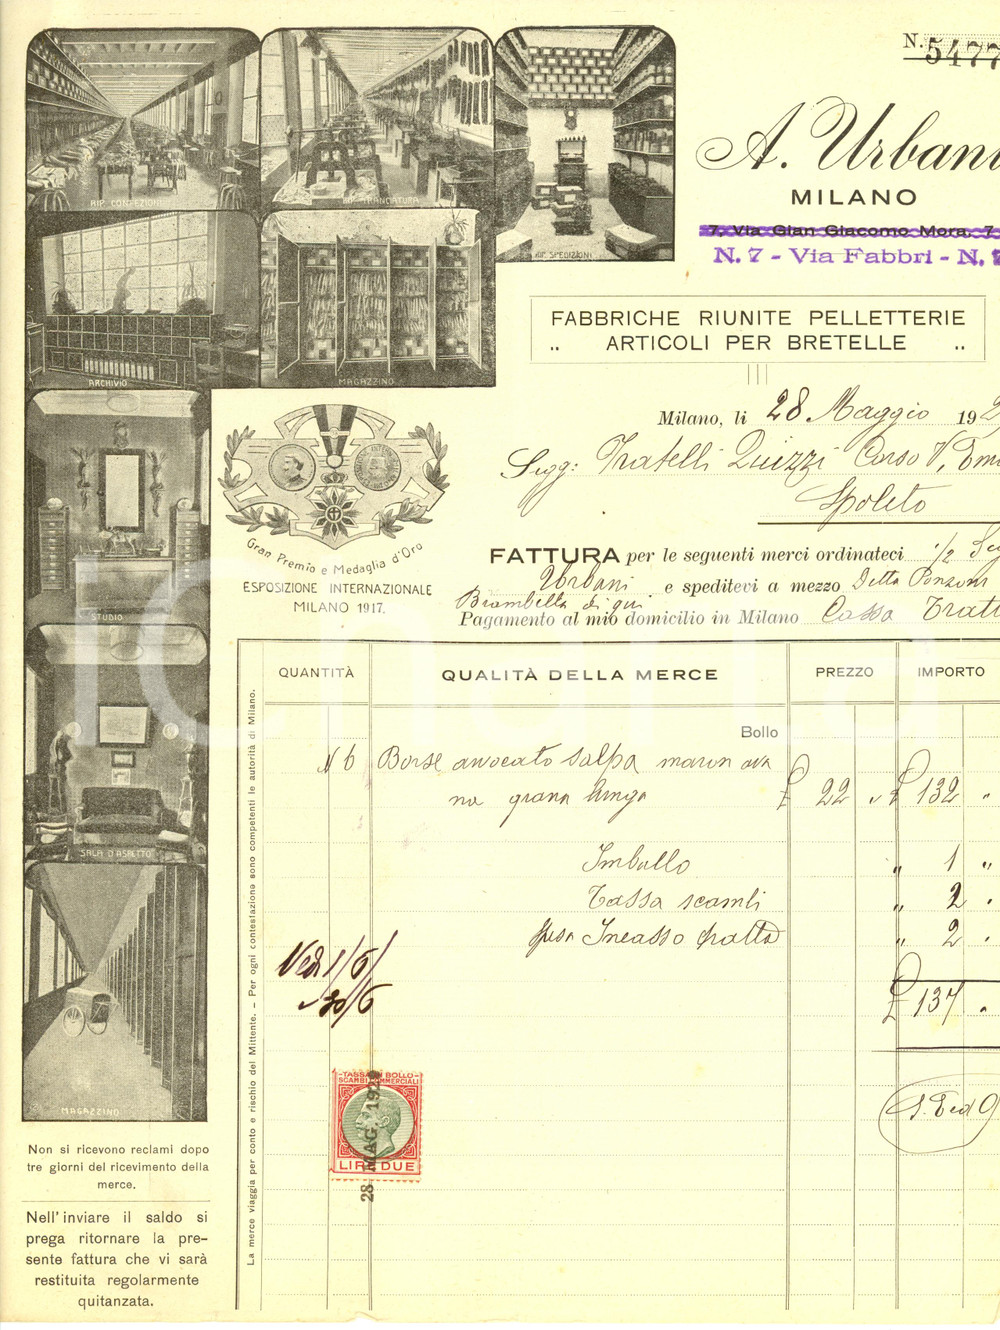 N. 5477
A. Urbani
MILANO
7, Via Gian Giacomo Mora, 7
N. 7 - Via Fabbri - N. 7
FABBRICHE RIUNITE PELLETTERIE
„ ARTICOLI PER BRETELLE „
RIP. CONFEZIONI
RIP. TRANCIATURA
RIP. SPEDIZIONI
ARCHIVIO
MAGAZZINO
STUDIO
SALA D'ASPETTO
MAGAZZINO
Gran Premio e Medaglia d'Oro
ESPOSIZIONE INTERNAZIONALE
MILANO 1917.
Milano, li 28 Maggio 192
Sigg: Fratelli Quizzi Corso V. Em
Spoleto
FATTURA per le seguenti merci ordinateci ½ Sig
Urbani e speditevi a mezzo Ditta Ponzoni
Brambilla di qui.
Pagamento al mio domicilio in Milano Cassa Tratt
QUANTITÀ QUALITÀ DELLA MERCE PREZZO IMPORTO
Bollo
N 6 Borse avvocato salpa maron ava
na grana lunga £ 22 „ £ 132 „
Imballo „ 1 „
Tassa scambi „ 2 „
Incasso tratta „ 2 „
£ 137 „
1/6
30/6
TASSA DI BOLLO
SCAMBI COMMERCIALI
LIRE DUE
28 MAG. 192
La merce viaggia per conto e rischio del Mittente. - Per ogni contestazione sono competenti le autorità di Milano.
Non si ricevono reclami dopo
tre giorni del ricevimento della
merce.
Nell'inviare il saldo si
prega ritornare la pre-
sente fattura che vi sarà
restituita regolarmente
quitanzata.